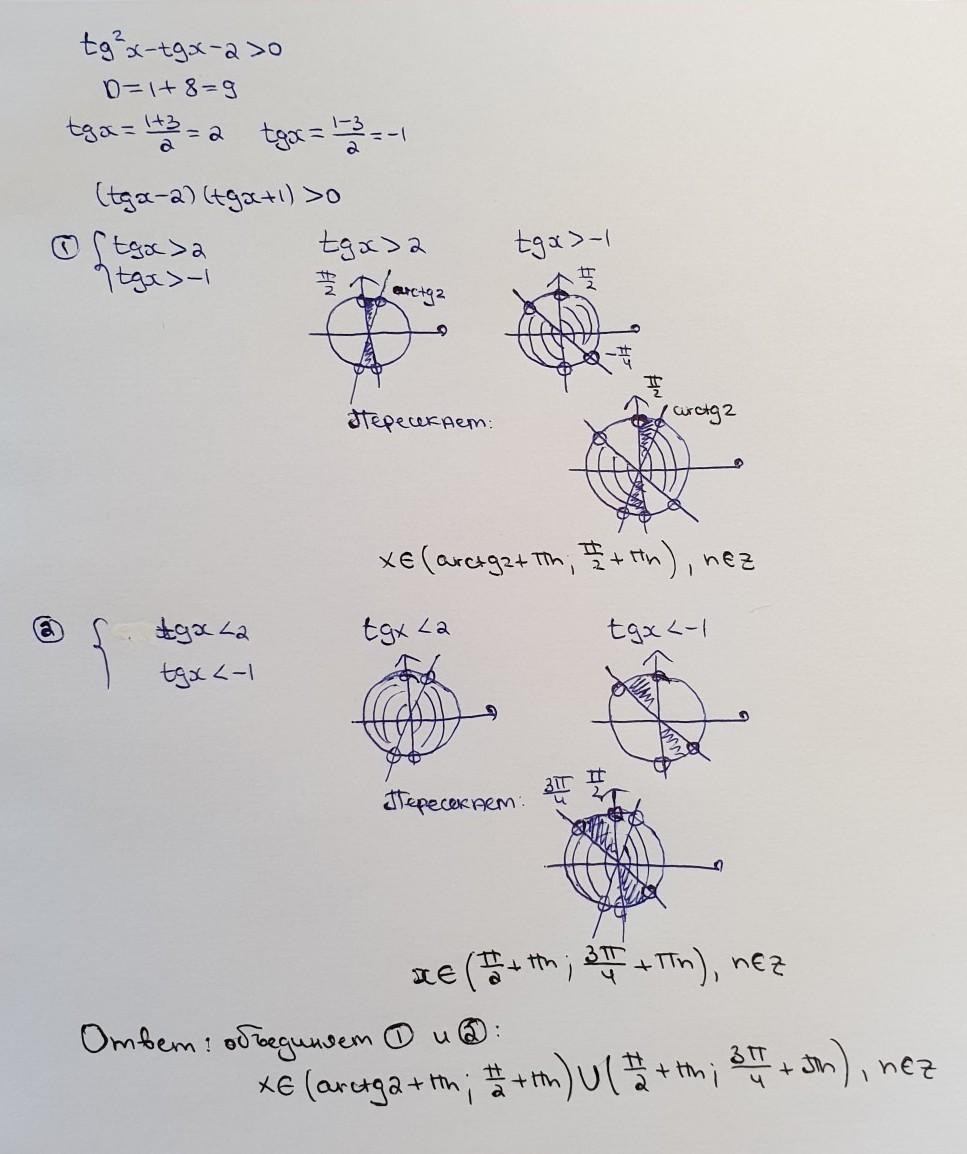 tg²x-tgx-2>0
D=1+8=9
tgx=(1+3)/2=2 tgx=(1-3)/2=-1
(tgx-2)(tgx+1)>0
① { tgx>2 tgx>2 tgx>-1
tgx>-1
π/2 arctg2 π/2
-π/4
π/2
Пересекаем: arctg2
x∈(arctg2+πn; π/2+πn), n∈z
② { tgx<2 tgx<2 tgx<-1
tgx<-1
Пересекаем: 3π/4 π/2
x∈(π/2+πn; 3π/4+πn), n∈z
Ответ: объединяем ① и ②:
x∈(arctg2+πn; π/2+πn)∪(π/2+πn; 3π/4+πn), n∈z